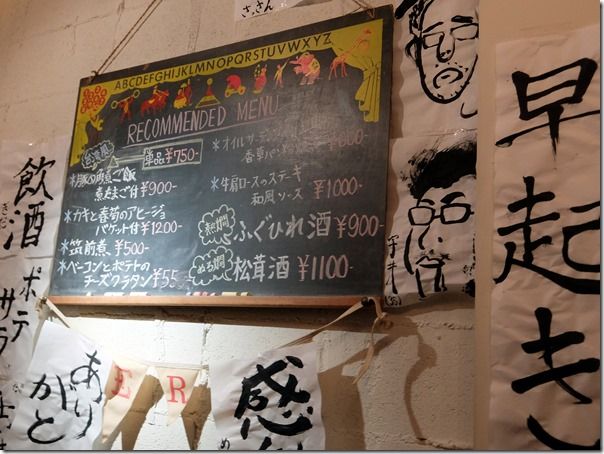 さっさん
ABCDEFGHIJKLMNOPQRSTUVWXYZ
RECOMMENDED MENU
台湾風
単品¥750-
煮ご飯
煮たまご付¥900-
*カキと春菊のアヒージョ
バケット付¥1200-
*筑前煮¥500-
*ベーコンとポテトの
チーズグラタン¥55
*オイルサーディン
香草パン
*牛肩ロースのステーキ
和風ソース ¥1000-
熱燗
ふぐひれ酒¥900-
ぬる燗
松茸酒¥1100-
早起き
飲酒
ポテサラ
ありがと
ER
感